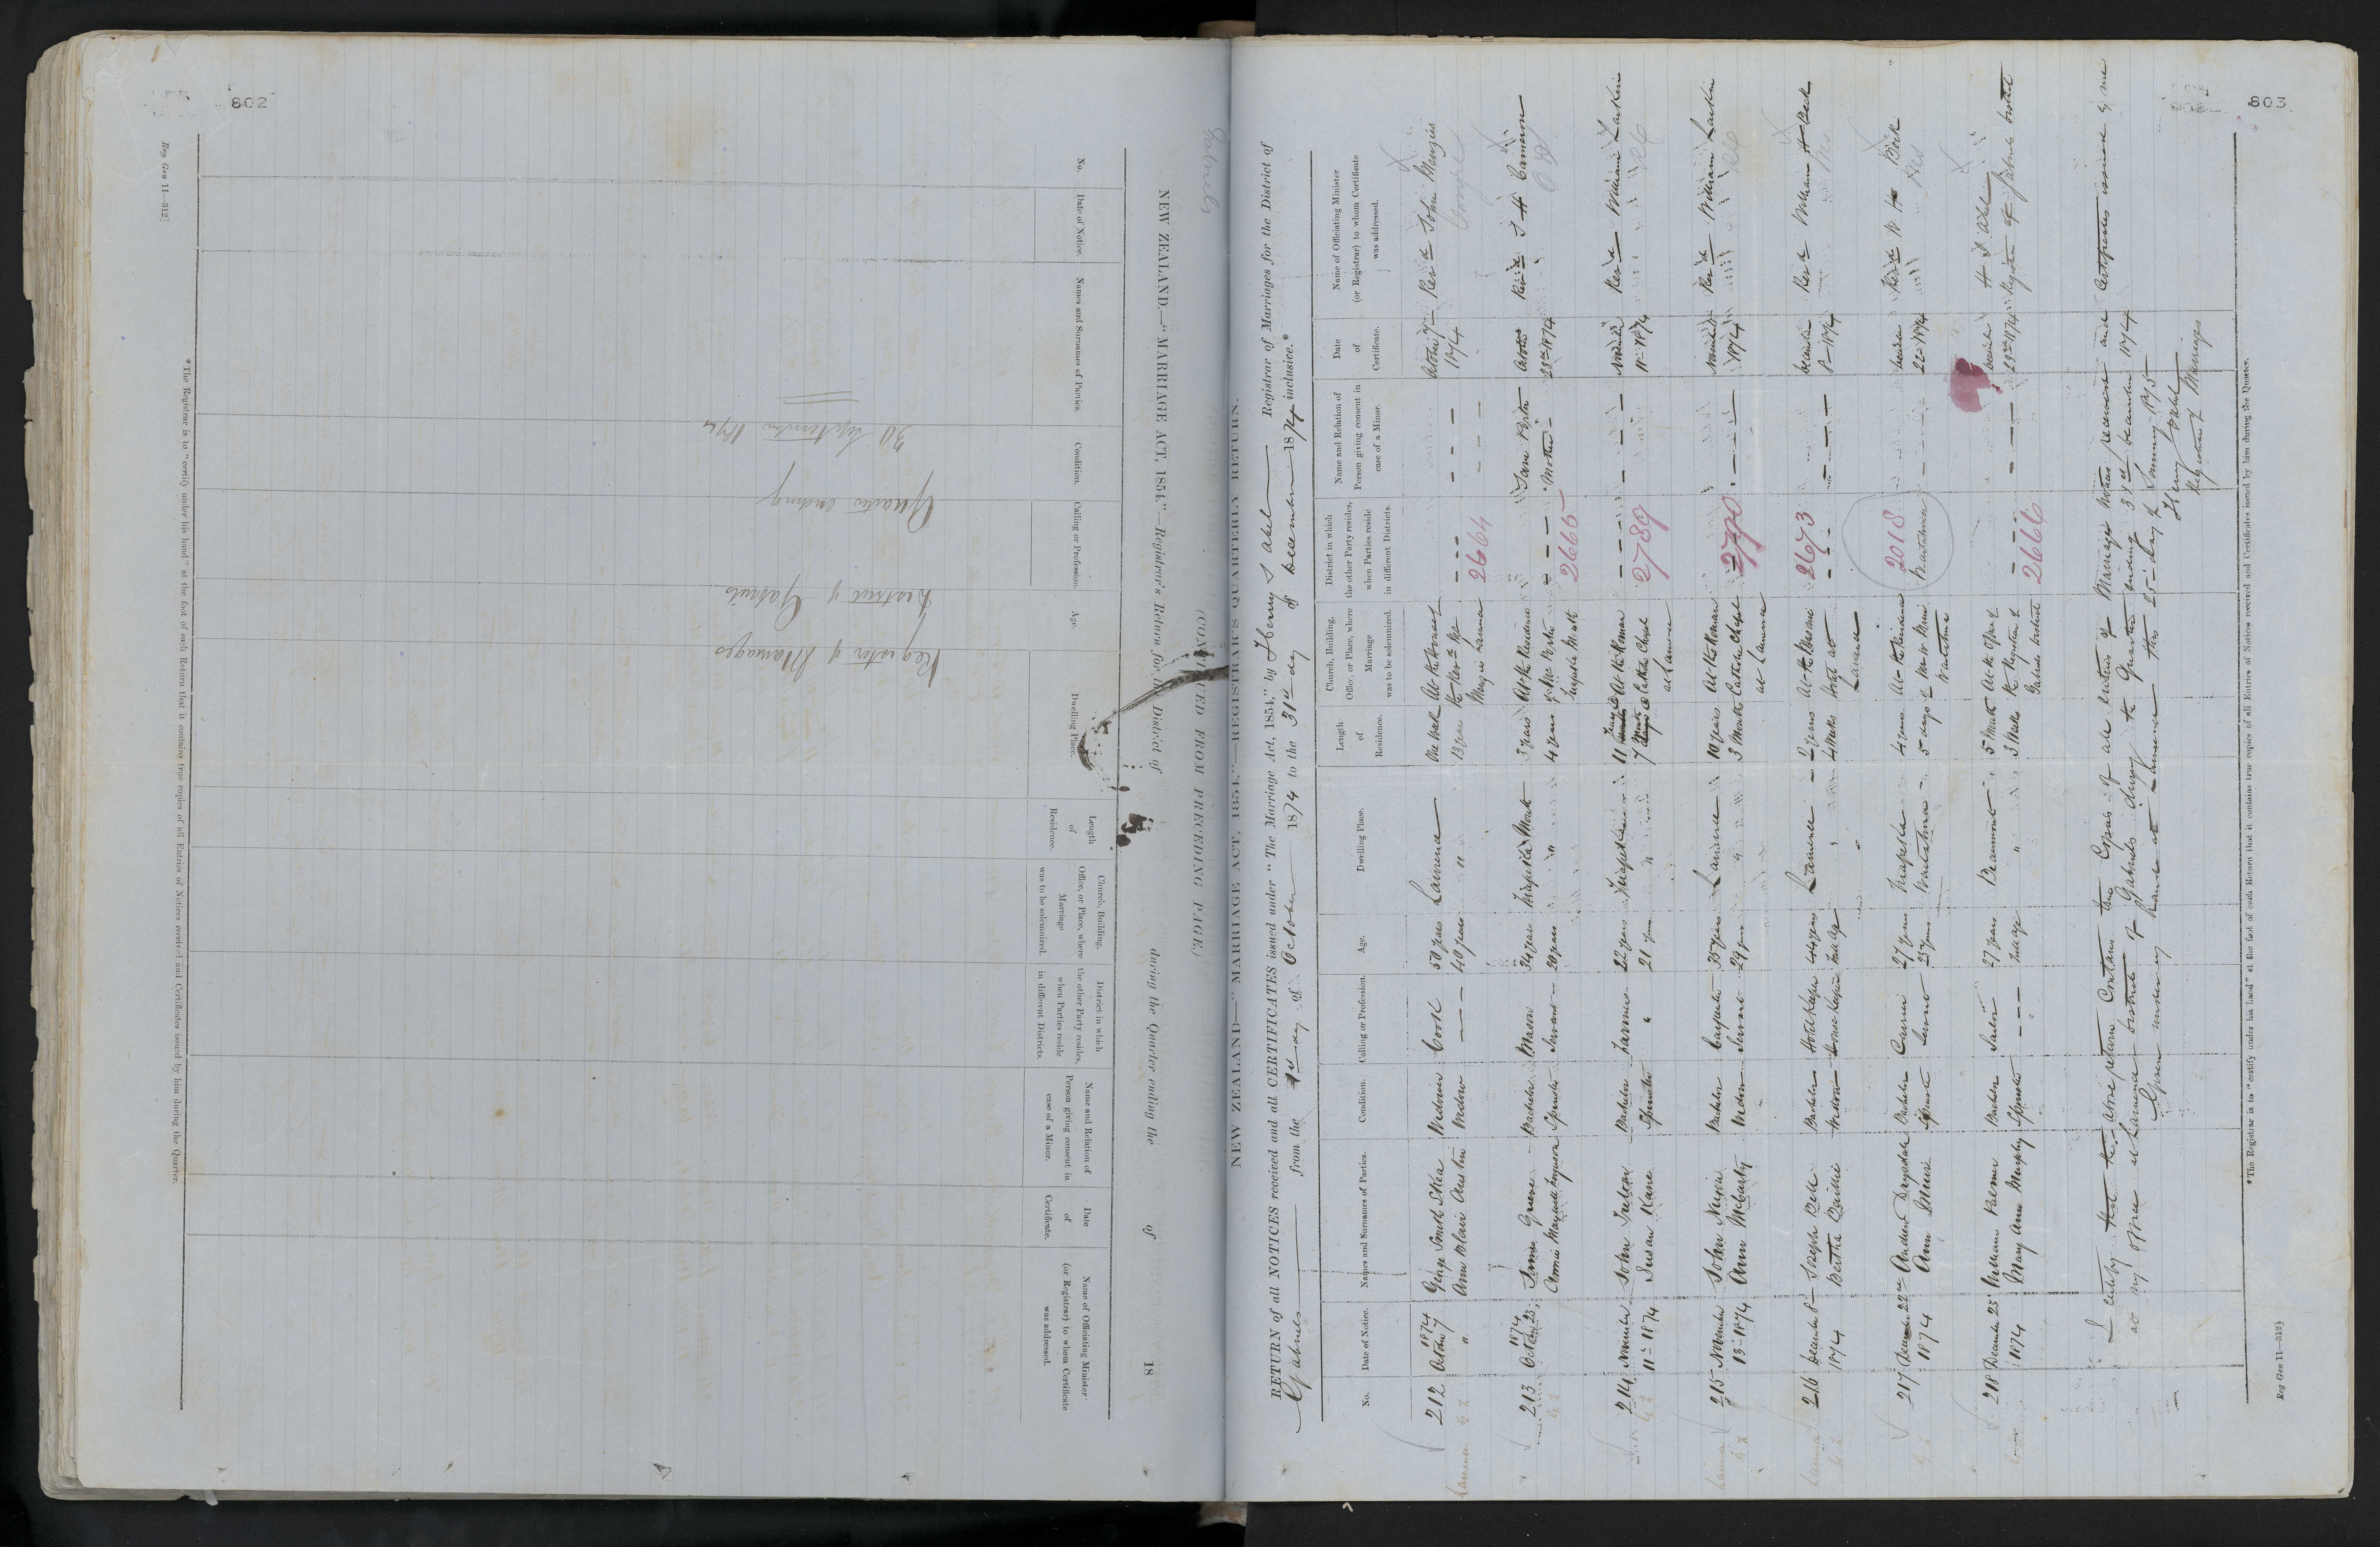 802
Reg Gen 11—312]
NEW ZEALAND.—"MARRIAGE ACT, 1854."—Registrar's Return for the District of during the Quarter ending the of 18
(CONTINUED FROM PRECEDING PAGE)
No.
Date of Notice.
Names and Surnames of Parties.
Condition.
Calling or Profession.
Age.
Dwelling Place.
Length of Residence.
Church, Building, Office, or Place, where Marriage was to be solemnized.
District in which the other Party resides, when Parties reside in different Districts.
Name and Relation of Person giving consent in case of a Minor.
Date of Certificate.
Name of Officiating Minister (or Registrar) to whom Certificate was addressed.
Register of Marriages
District of Gabriels
Quarter ending
30 September 1874
*The Registrar is to "certify under his hand" at the foot of each Return that it contains true copies of all Entries of Notices received and Certificates issued by him during the Quarter.
803
Gabriels
NEW ZEALAND—"MARRIAGE ACT, 1854."—REGISTRAR'S QUARTERLY RETURN.
RETURN of all NOTICES received and all CERTIFICATES issued under "The Marriage Act, 1854," by Henry S Abel Registrar of Marriages for the District of
Gabriels from the 1st day of October 1874 to the 31st day of December 1874 inclusive.*
No.
Date of Notice.
Names and Surnames of Parties.
Condition.
Calling or Profession.
Age.
Dwelling Place.
Length of Residence.
Church, Building, Office, or Place, where Marriage was to be solemnized.
District in which the other Party resides, when Parties reside in different Districts.
Name and Relation of Person giving consent in case of a Minor.
Date of Certificate.
Name of Officiating Minister (or Registrar) to whom Certificate was addressed.
212 1874 October 7 George Smith Widower Cook 50 years Lawrence One Week October 7th 1874 Revd John Menzies
" Ann Blair Austin Widow 40 years " 13 years Menzies Lawrence 2664
213 1874 October 23 Greene Bachelor Mason 34 years Tuapeka Mouth 3 years At the Residence Jane Porter October 23rd 1874 Revd J H Cameron
Annie Maxwell Ferguson Spinster Servant 20 years " 4 years of Mr Porter Tuapeka Mouth 2665 Mother
214 November 11th 1874 John Bachelor Farmer 22 years Tuapeka 11 At the Roman November 11th 1874 Revd William Larkin
Susan Kane Spinster " 21 years " 7 Catholic Chapel at Lawrence 2789
215 November 13th 1874 John Bachelor Carpenter 35 years Lawrence 10 years At the Roman November 1874 Revd William Larkin
Ann McCarty Widow Servant 29 years " 3 Months Catholic Chapel at Lawrence 2790
216 December 8th 1874 Joseph Bell Bachelor Hotel Keeper 44 years Lawrence 2 years At the December 8th 1874 Revd William H Beck
Bertha Baillie Widow House Keeper Full Age " 4 Weeks Hotel at Lawrence 2673
217 December 22nd 1874 Andrew Drysdale Bachelor Carrier 27 years Tuapeka 4 years At the Residence December 22nd 1874 Revd W H Beck
Ann Muir Spinster Servant 23 years Waitahuna 5 days of Mr W Muir Waitahuna 2018 Waitahuna
218 December 23 1874 William Palmer Bachelor Sailor 27 years Beaumont 5 Months At the Office of December 23rd 1874 H S Abel
Mary Ann Murphy Spinster Full age " 3 Weeks the Registrar of Gabriels District 2666 Registrar of Gabriels District
I certify that the above return contains true copies of all entries of Marriage Notices received and Certificates issued by me
at my office at Lawrence District of Gabriels during the Quarter ending 31st December 1874
Given under my hand at Lawrence this 25th day of January 1875
Henry S Abel
Registrar of Marriages
*The Registrar is to "certify under his hand" at the foot of each Return that it contains true copies of all Entries of Notices received and Certificates issued by him during the Quarter.
Reg Gen 11—312]